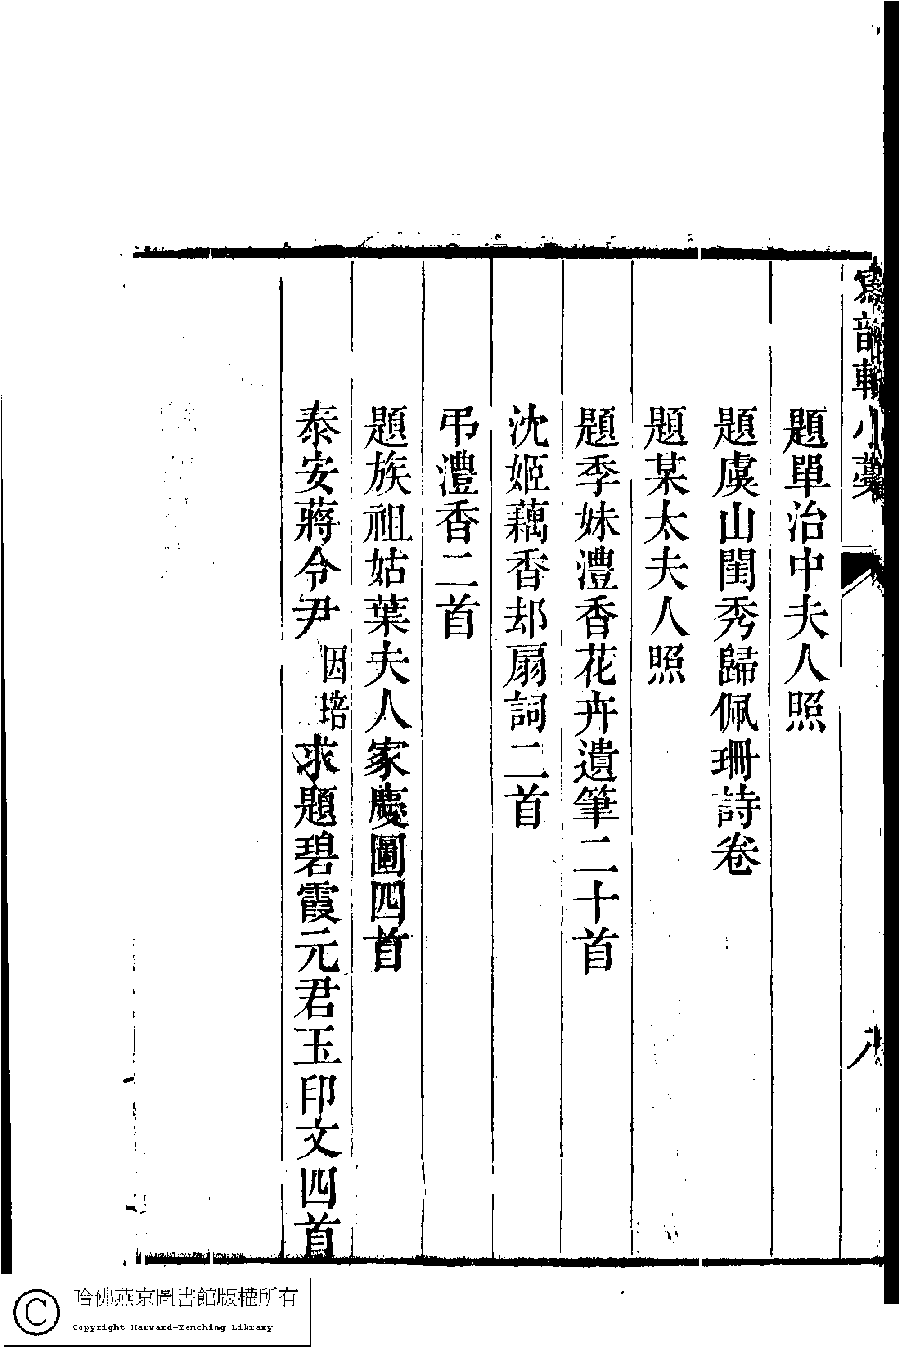 寫韻軒小藁
八
題單治中夫人照
題虞山閨秀歸佩珊詩卷
題某太夫人照
題季妹澧香花卉遺筆二十首
沈姬藕香却扇詞二首
弔澧香二首
題族祖姑葉夫人家慶圖四首
泰安蔣令尹因培求題碧霞元君玉印文四首
哈佛燕京圖書館版權所有
Copyright Harvard-Yenching Library